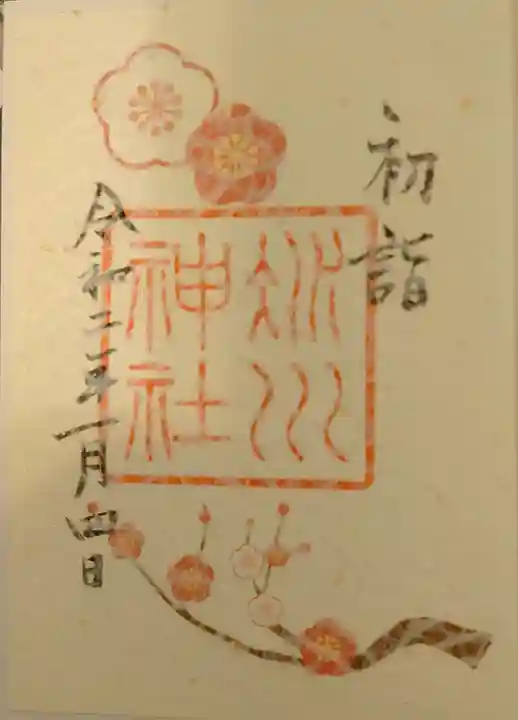 初詣
氷川
神社
令和二年一月四日